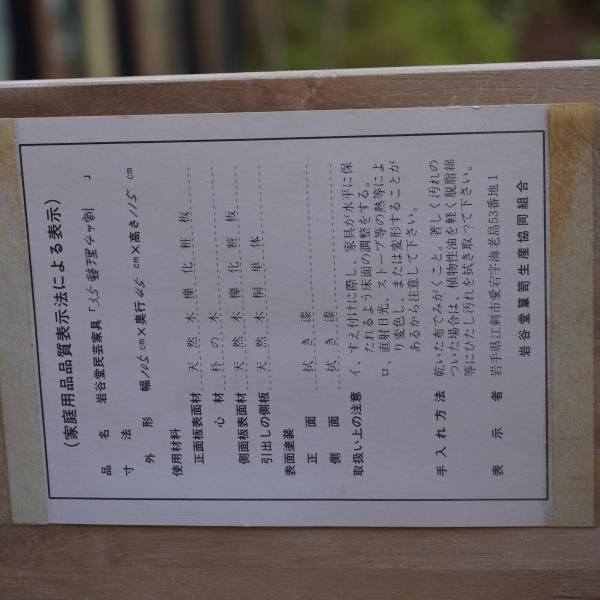 (家庭用品品質表示法による表示)
品名 岩谷堂民芸家具「3.5整理4ツ割」
寸法
外形 幅105cm×奥行45cm×高さ115cm
使用材料
正面板表面材 天然木欅化粧板
心材 朴の木
側面板表面材 天然木欅化粧板
引出しの側板 天然木桐単体
表面塗装
正面 拭き漆
側面 拭き漆
取扱い上の注意 イ、すえ付けに際し、家具が水平に保
たれるよう床面の調整をする。
ロ、直射日光、ストーブ等の熱等によ
り変色し、または変形することが
あるから注意して下さい。
手入れ方法 乾いた布でみがくこと。著しく汚れの
ついた場合は、植物性油を軽く脱脂綿
等にひたし汚れを拭き取って下さい。
表示者 岩手県江刺市愛宕字海老島53番地1
岩谷堂簞笥生産協同組合